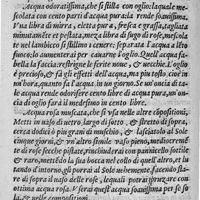 Acqua odoratissima, che si stilla con oglio: laquale me
scolata con cento parti di acqua pura la rende soauissima.
Una libra di mirra, eletta pura, fresca e grassa, tagliata
minutamēte et pestata, meza libra di sugo di rose, mescola
te nel lambicco si stillino à cenere: separata l'acqua a len
to fuoco: lo aumenterai per cauarne l'oglio. Quell'acqua fa
bella la faccia: restrigne le ferite noue, & uecchie. L'oglio
è precioso, & fa gli effetti dell'acqua, ma piu tosto, cioè in
un'hora, quanto fa l'acqua, in un giorno. Se un'oncia di ta
le acqua rende odorifere cento libre di acqua pura, un'on
cia di oglio farà il medesimo in cento libre.
Acqua rosa muscata, che si usa nelle altre cōpositioni,
Metti in uaso di uetro largo di sotto, & stretto di sopra,
cerca dodici ò piu grani di muschio, & lasciatolo al Sole
cinque giorni, & un'altro simile uaso pieno, mediocremē
te di rose secche pistate, rinchiuderai con pannicello sottile
& raro, mettēdo la sua bocca nel collo di quell'altro, et lu
tando d'intorno, gli porrai al Sole uehemente, facendo sta
re di sopra'l uaso delle rose, lequali potrai spruzare con
ottima acqua rosa. Et serai quest'acqua soauissima per se so
la, & nelle compositioni